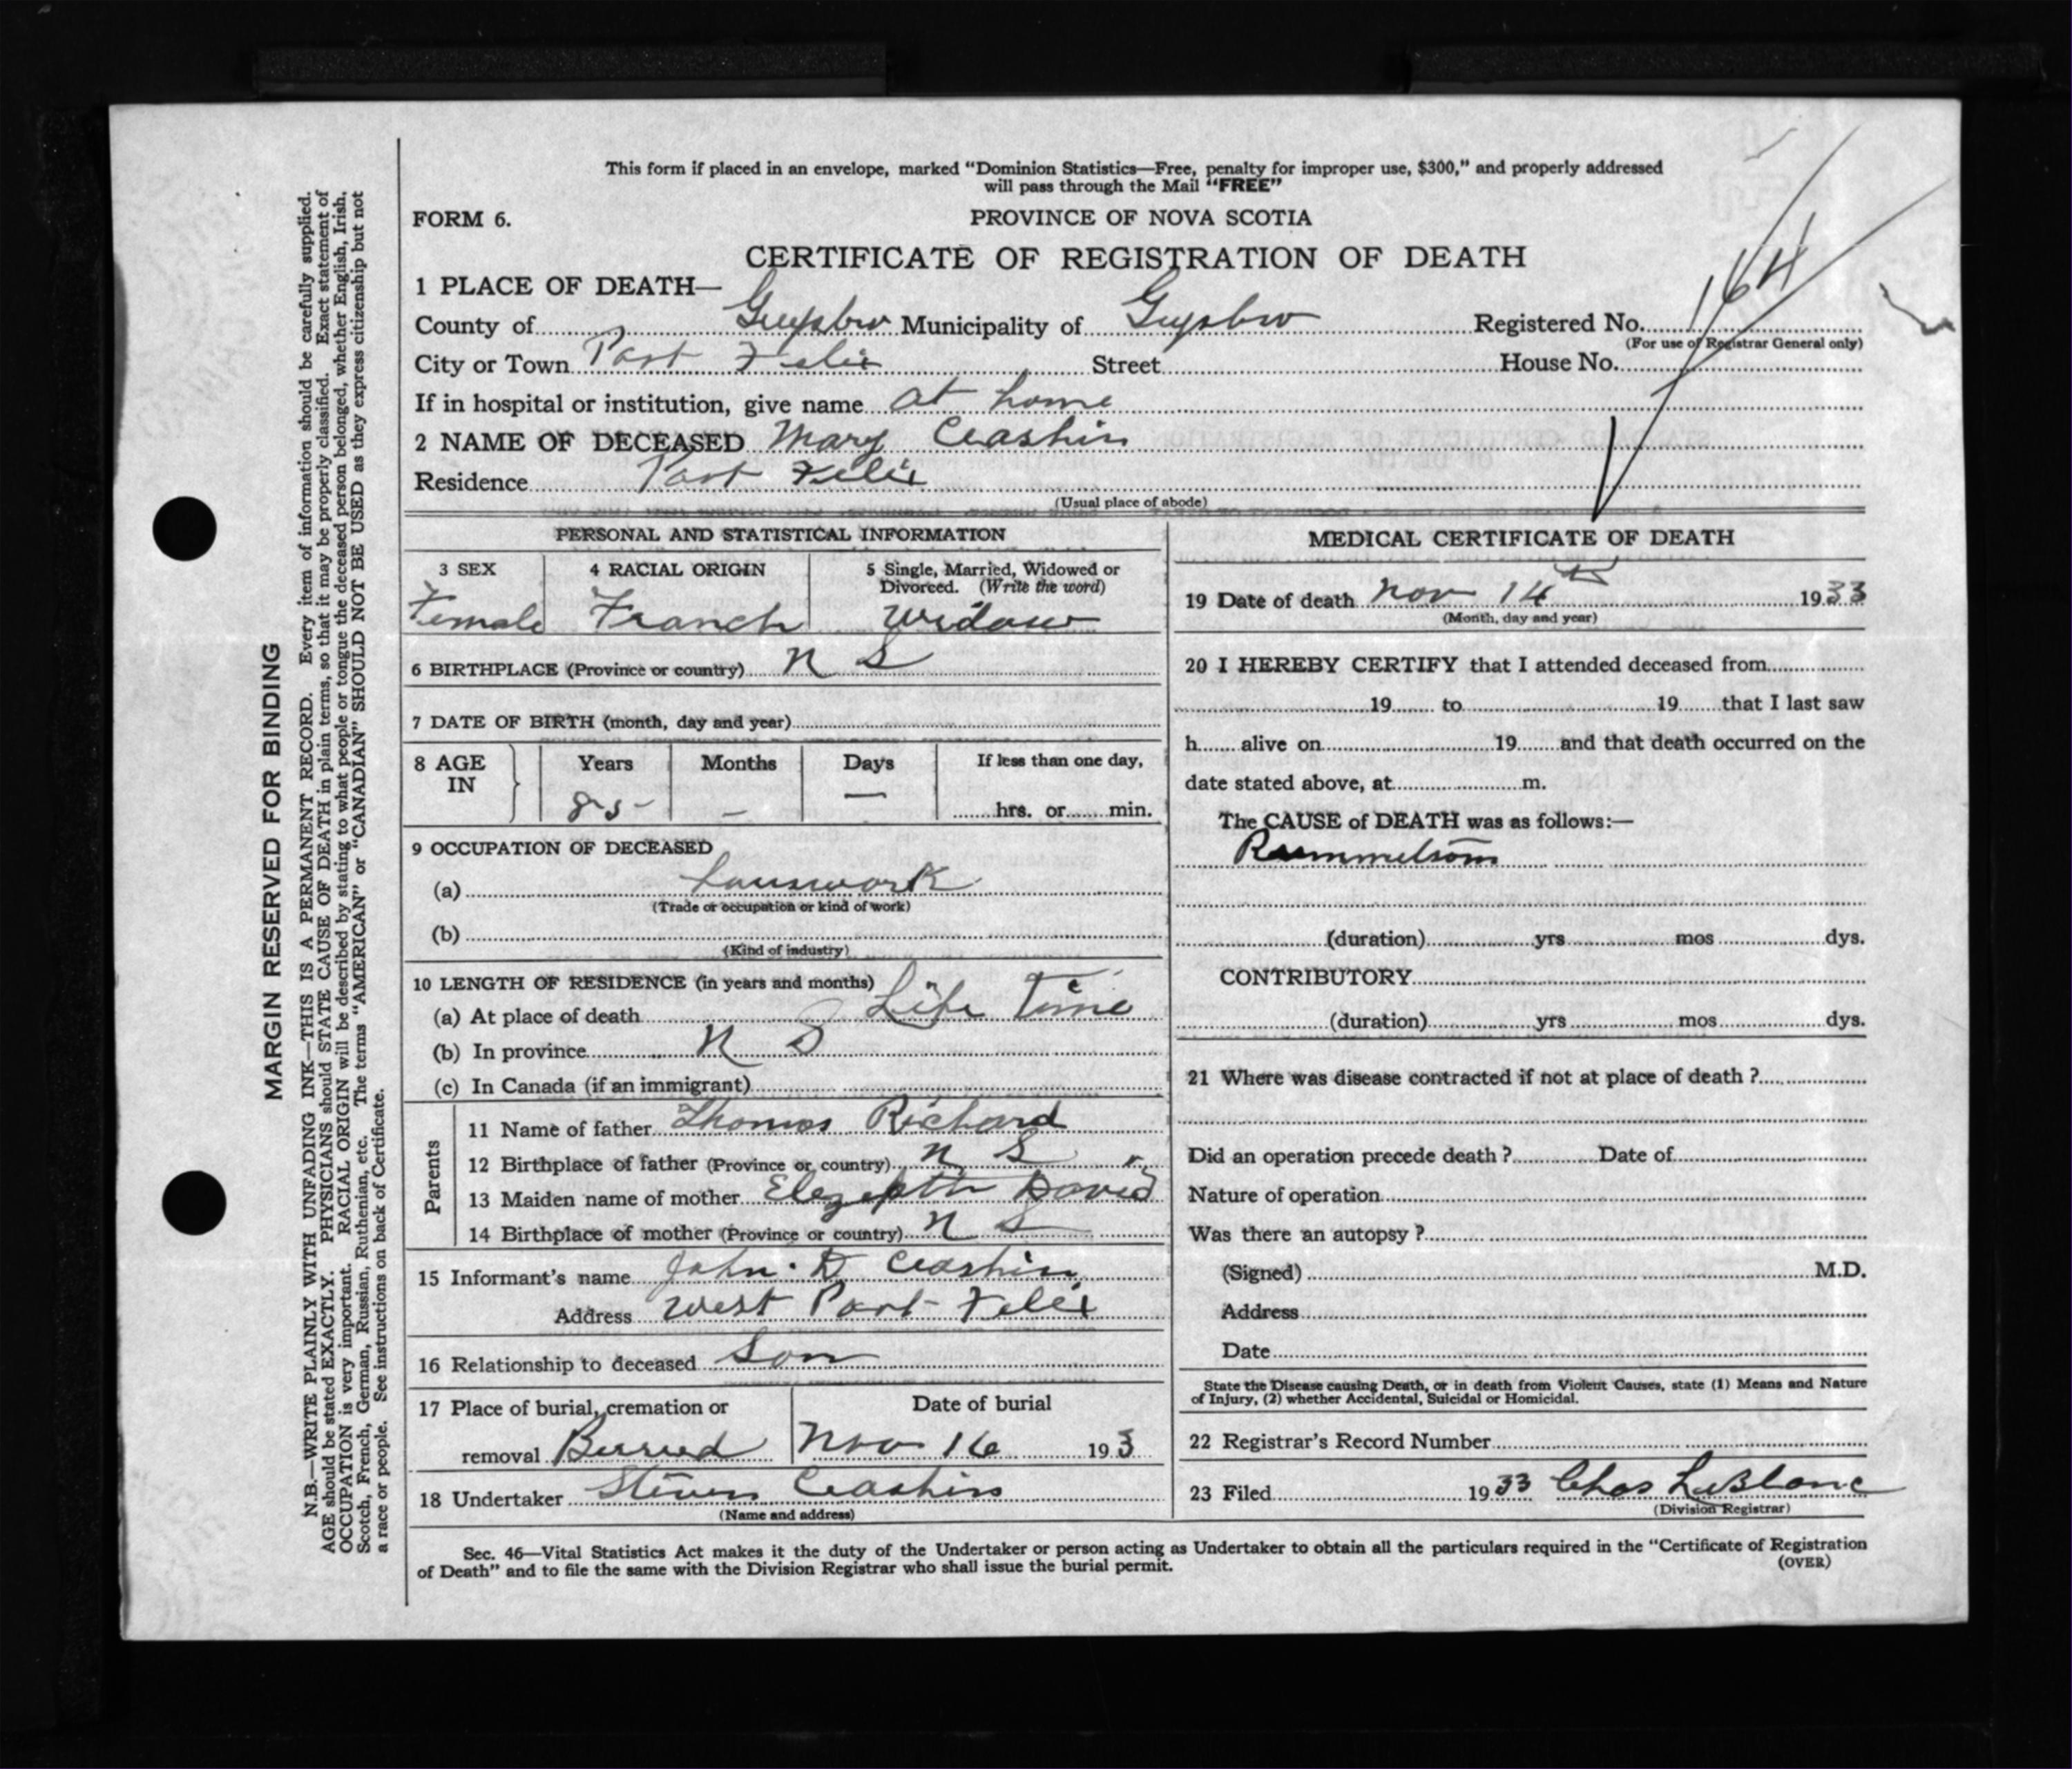 This form if placed in an envelope, marked "Dominion Statistics—Free, penalty for improper use, $300," and properly addressed
will pass through the Mail "FREE"
FORM 6.
PROVINCE OF NOVA SCOTIA
CERTIFICATE OF REGISTRATION OF DEATH
1 PLACE OF DEATH—
County of Guysbro Municipality of Guysbro Registered No. 164
(For use of Registrar General only)
City or Town Port Felix Street House No.
If in hospital or institution, give name at home
2 NAME OF DECEASED Mary
Residence Port Felix
(Usual place of abode)
PERSONAL AND STATISTICAL INFORMATION
3 SEX 4 RACIAL ORIGIN 5 Single, Married, Widowed or
Divorced. (Write the word)
Female Franch Widow
6 BIRTHPLACE (Province or country) N S
7 DATE OF BIRTH (month, day and year)
8 AGE Years Months Days If less than one day,
IN
85 — — hrs. or min.
9 OCCUPATION OF DECEASED
(a) houswork
(Trade or occupation or kind of work)
(b)
(Kind of industry)
10 LENGTH OF RESIDENCE (in years and months)
(a) At place of death Life Time
(b) In province N S
(c) In Canada (if an immigrant)
Parents
11 Name of father Thomos Richard
12 Birthplace of father (Province or country) N S
13 Maiden name of mother David
14 Birthplace of mother (Province or country) N S
15 Informant's name John. D
Address West Port Felix
16 Relationship to deceased Son
17 Place of burial, cremation or Date of burial
removal Burried Nov 16 193
18 Undertaker Steven
(Name and address)
MEDICAL CERTIFICATE OF DEATH
19 Date of death Nov 14th 1933
(Month, day and year)
20 I HEREBY CERTIFY that I attended deceased from
19 to 19 that I last saw
h alive on 19 and that death occurred on the
date stated above, at m.
The CAUSE of DEATH was as follows:—
(duration) yrs mos dys.
CONTRIBUTORY
(duration) yrs mos dys.
21 Where was disease contracted if not at place of death ?
Did an operation precede death ? Date of
Nature of operation
Was there an autopsy ?
(Signed) M.D.
Address
Date
State the Disease causing Death, or in death from Violent Causes, state (1) Means and Nature
of Injury, (2) whether Accidental, Suicidal or Homicidal.
22 Registrar's Record Number
23 Filed 1933 Chas LeBlanc
(Division Registrar)
Sec. 46—Vital Statistics Act makes it the duty of the Undertaker or person acting as Undertaker to obtain all the particulars required in the "Certificate of Registration
of Death" and to file the same with the Division Registrar who shall issue the burial permit.
(OVER)
MARGIN RESERVED FOR BINDING
N.B.—WRITE PLAINLY WITH UNFADING INK—THIS IS A PERMANENT RECORD. Every item of information should be carefully supplied.
AGE should be stated EXACTLY. PHYSICIANS should STATE CAUSE OF DEATH in plain terms, so that it may be properly classified. Exact statement of
OCCUPATION is very important. RACIAL ORIGIN will be described by stating to what people or tongue the deceased person belonged, whether English, Irish,
Scotch, French, German, Russian, Ruthenian, etc. The terms "AMERICAN" or "CANADIAN" SHOULD NOT BE USED as they express citizenship but not
a race or people. See instructions on back of Certificate.